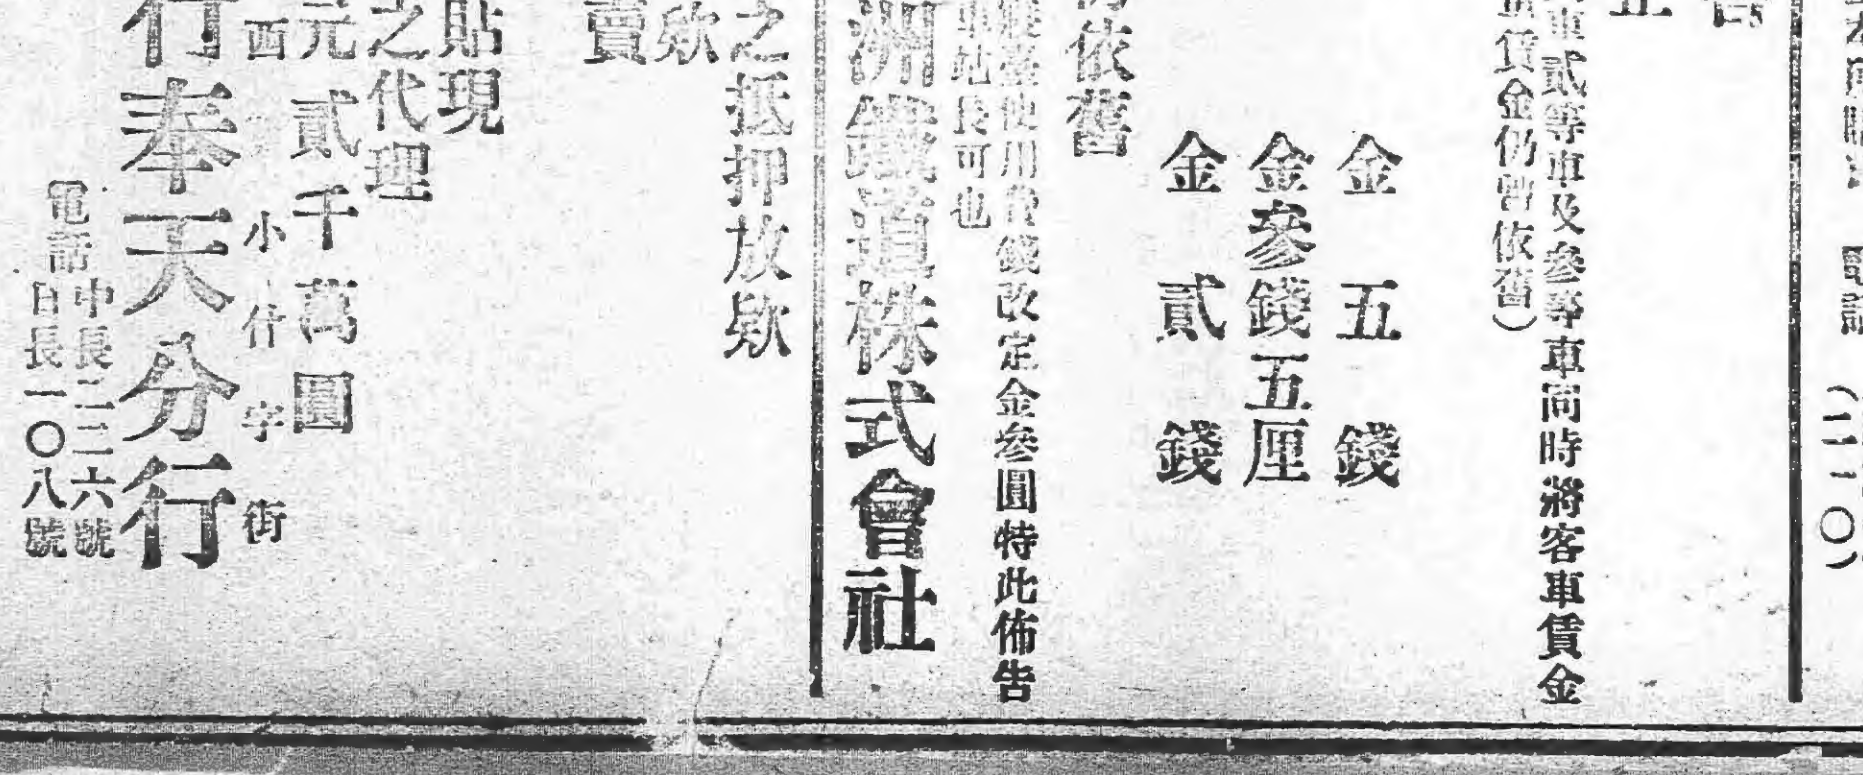 電話
(二一〇)
車貳等車及參等車同時將客車賃金
賃金仍皆依舊)
金五錢
金參錢五厘
金貳錢
依舊
使用費錢改定金參圓特此佈告
站長可也
洲鐵道株式會社
之抵押放欵
欵
賣
貼現
之代理
元貳千萬圓
西小什字街
行奉天分行
電話
中長二二六號
日長一〇八號